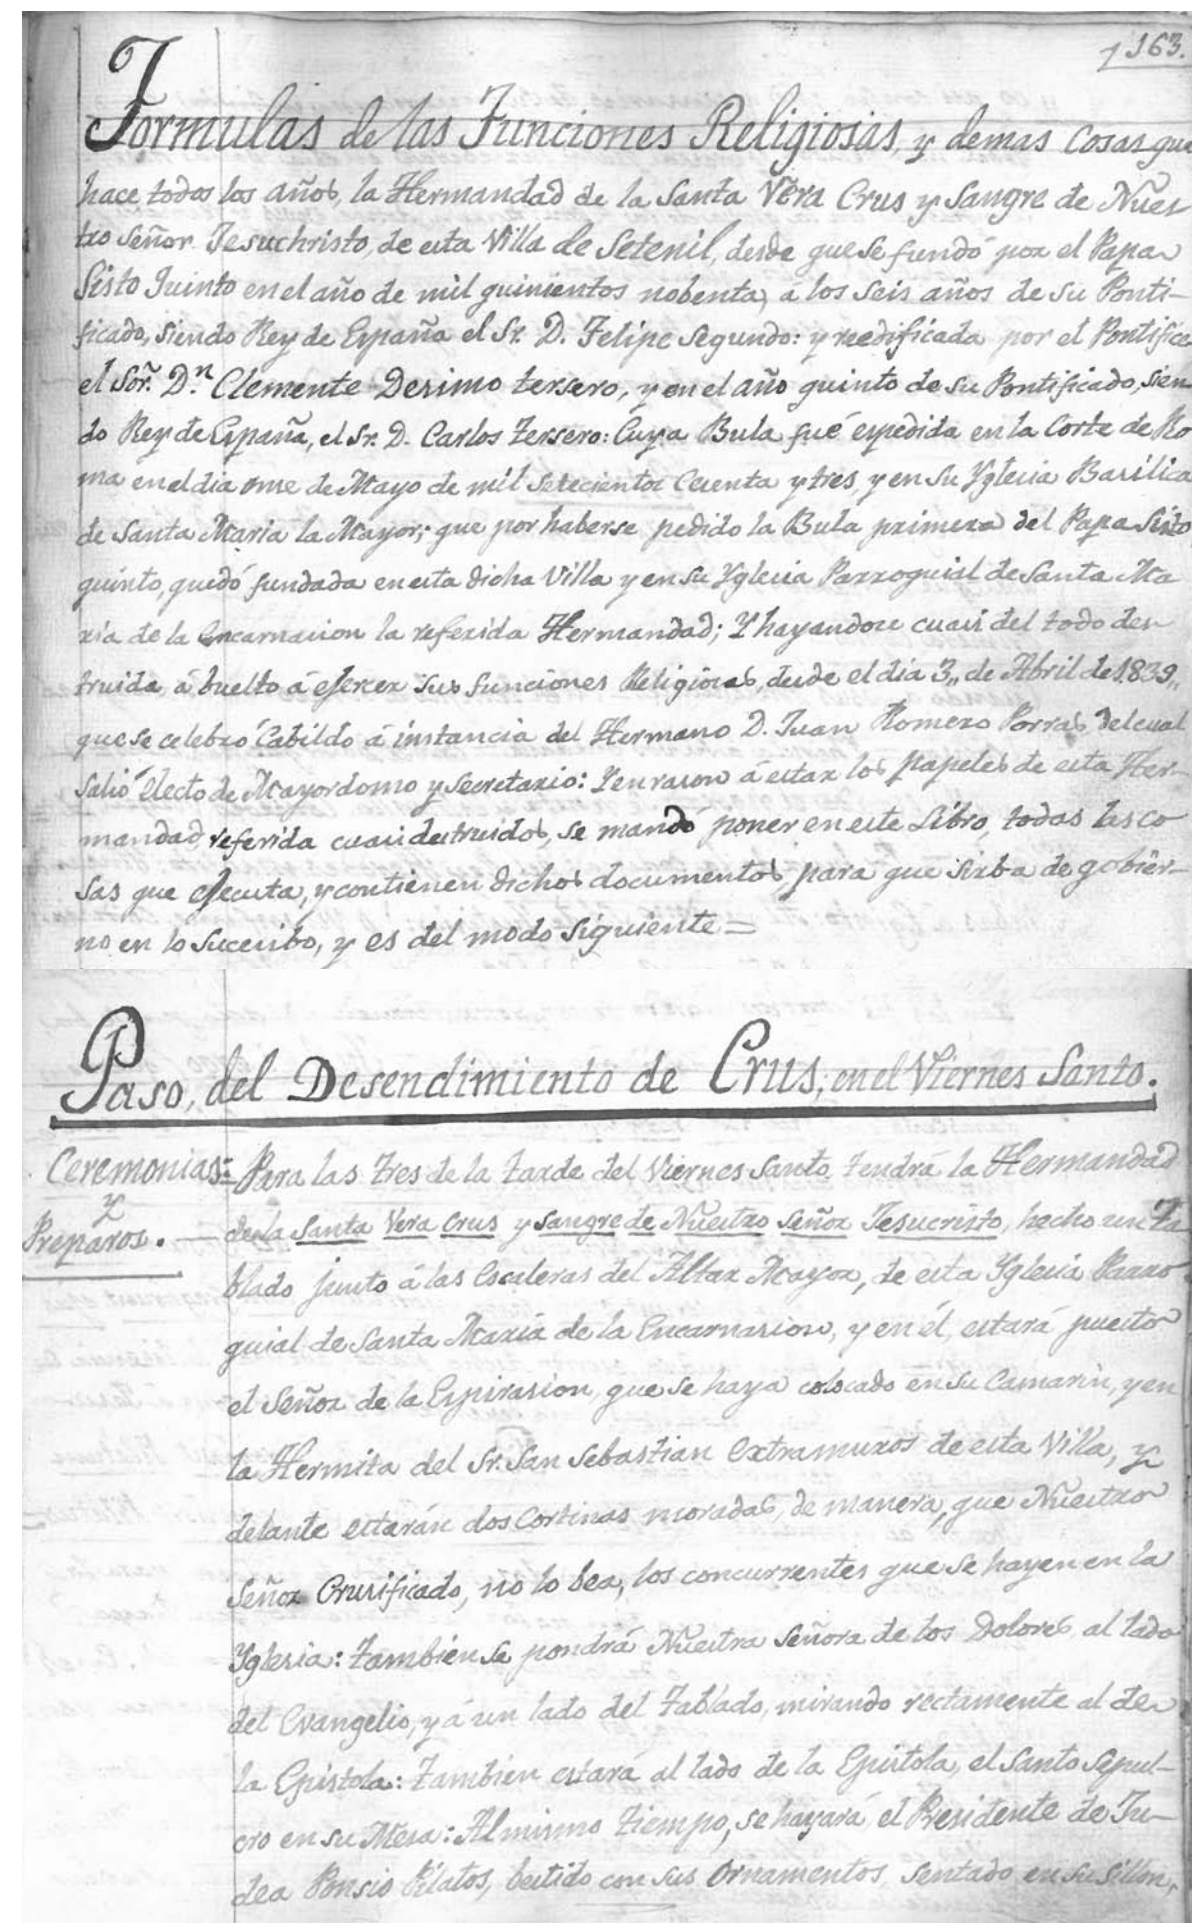 163.
Formulas de las Funciones Religiosas, y demas Cosas que
hace todos los años, la Hermandad de la Santa Vera Crus y Sangre de Nues-
tro Señor Jesuchristo, de esta Villa de Setenil, desde que se fundó por el Papa
Sisto Quinto en el año de mil quinientos nobenta, á los seis años de su Ponti-
ficado, siendo Rey de España el Sr. D. Felipe Segundo: y reedificada por el Pontifice
el Sor. Dn. Clemente Desimo tersero, y en el año quinto de su Pontificado, sien-
do Rey de España, el Sr. D. Carlos Tersero: Cuya Bula fué espedida en la Corte de Ro
ma en el dia onse de Mayo de mil setecientos Cesenta y tres, y en su Yglesia Basilica
de Santa Maria la Mayor; que por haberse pedido la Bula primera del Papa Sisto
quinto, quedó fundada en esta dicha Villa y en su Yglesia Parroquial de Santa Ma
ria de la Encarnasion la referida Hermandad; Y hayandose cuasi del todo des-
truida, á buelto á ejerser sus funciones Religiosas, desde el dia 3,, de Abril de 1.839,,
que se celebró Cabildo á instancia del Hermano D. Juan Romero Porras del cual
Salió Electo de Mayordomo y Secretario: Y en rason á estar los papeles de esta Her-
mandad referida cuasi destruidos, se mandó poner en este Libro, todas las co
sas que ejecuta, y contienen dichos documentos, para que sirba de gobier-
no en lo Sucesibo, y es del modo siguiente =
Paso, del Desendimiento de Crus, en el Viernes Santo.
Ceremonias = Para las tres de la tarde del Viernes Santo, tendrá la Hermandad
y
Preparos. — de la Santa Vera Crus y Sangre de Nuestro Señor Jesucristo, hecho un Ta
blado junto á las Escaleras del Altar Mayor, de esta Yglesia Parro
quial de Santa Maria de la Encarnasion, y en él, estará puesto
el Señor de la Espirasion, que se haya colocado en su Camarin, y en
la Hermita del Sr. San Sebastian extramuros de esta Villa, y
delante estarán dos Cortinas moradas, de manera, que Nuestro
Señor Crusificado, no lo bea, los concurrentes que se hayen en la
Yglesia: tambien se pondrá Nuestra Señora de los Dolores, al lado
del Evangelio, y á un lado del Tablado, mirando rectamente al de
la Epistola: tambien estará al lado de la Epistola, el Santo Sepul-
cro en su Mesa: Al mismo tiempo, se hayará, el Presidente de Ju-
dea Ponsio Pilatos, bestido con sus Ornamentos, sentado en su Sillon,